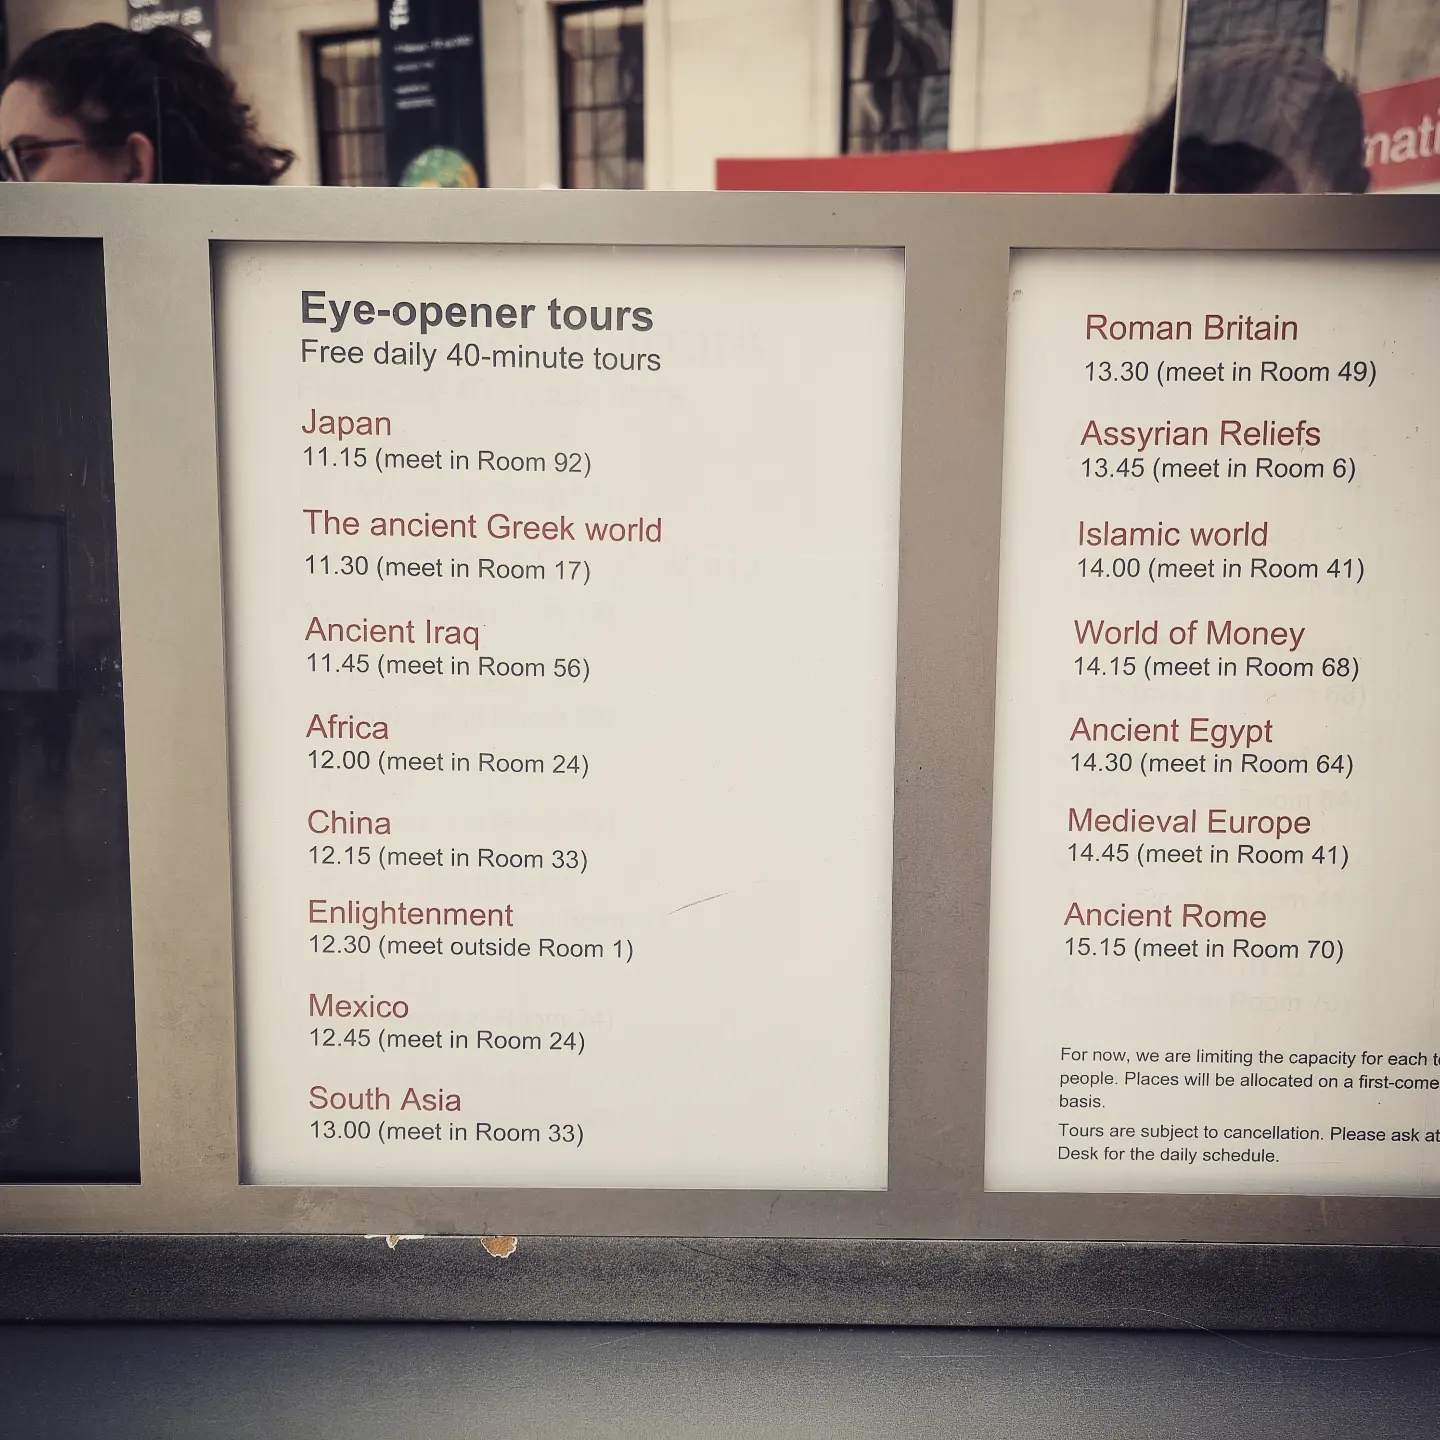 Eye-opener tours
Free daily 40-minute tours
Japan
11.15 (meet in Room 92)
The ancient Greek world
11.30 (meet in Room 17)
Ancient Iraq
11.45 (meet in Room 56)
Africa
12.00 (meet in Room 24)
China
12.15 (meet in Room 33)
Enlightenment
12.30 (meet outside Room 1)
Mexico
12.45 (meet in Room 24)
South Asia
13.00 (meet in Room 33)
Roman Britain
13.30 (meet in Room 49)
Assyrian Reliefs
13.45 (meet in Room 6)
Islamic world
14.00 (meet in Room 41)
World of Money
14.15 (meet in Room 68)
Ancient Egypt
14.30 (meet in Room 64)
Medieval Europe
14.45 (meet in Room 41)
Ancient Rome
15.15 (meet in Room 70)
For now, we are limiting the capacity for each
people. Places will be allocated on a first-come
basis.
Tours are subject to cancellation. Please ask at
Desk for the daily schedule.